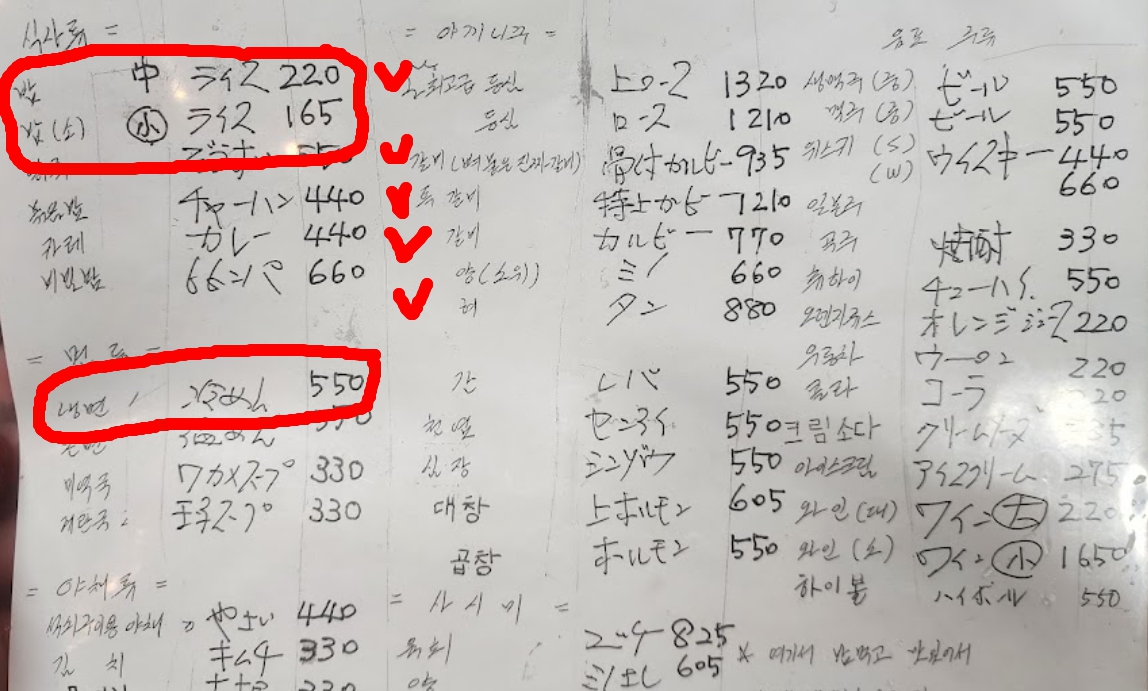 식사류 =
밥 中 ライス 220
밥(소) 小 ライス 165
550
볶음밥 チャーハン 440
카레 カレー 440
비빔밥 ビビンバ 660
= 면류 =
냉면 550
온면 温めん
미역국 ワカメスープ 330
계란국 : 玉子スープ 330
= 야채류 =
야채 やさい 440
김치 キムチ 330
220
= 야끼니꾸 =
최고급 등심 上ロース 1320
등심 ロース 1210
갈비(뼈 붙은 진짜갈비) 骨付カルビー 935
특갈비 特上カルビー 1210
갈비 カルビー 770
양(소위) ミノ 660
혀 タン 880
간 レバ 550
천엽 センマイ 550
심장 シンゾウ 550
대창 上ホルモン 605
곱창 ホルモン 550
= 사시미 =
육회 ユッケ 825
605
음료 주류
생맥주(중) ビール 550
맥주(중) ビール 550
위스키 (S) ウイスキー 440
(W) 660
일본
소주 焼酎 330
츄하이 チューハイ 550
오렌지쥬스 オレンジジュース 220
우롱차 ウーロン 220
콜라 コーラ
크림소다 クリームソーダ
아이스크림 アイスクリーム 275
와인(대) ワイン 大 220
와인(소) ワイン 小 1650
하이볼 ハイボール 550
* 여기서 밥먹고